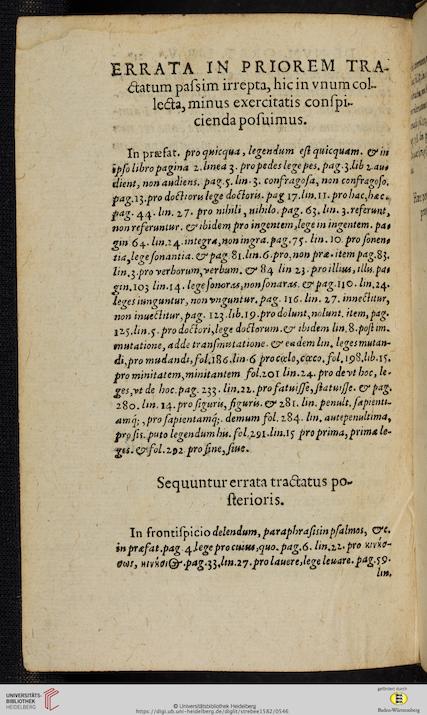 ERRATA IN PRIOREM TRA-
ctatum passim irrepta, hic in vnum col-
lecta, minus exercitatis conspi-
cienda posuimus.
In præfat. pro quicqua, legendum est quicquam. & in
ipso libro pagina 2. linea 3. pro pedes lege pes. pag. 3. lib 2. au-
dient, non audiens. pag. 5. lin. 3. confragosa, non confragoso.
pag. 13. pro doctioris lege doctoris. pag 17. lin. 11. pro hac, hæc.
pag. 44. lin. 27. pro nihili, nihilo. pag. 63. lin. 3. referunt,
non referuntur. & ibidem pro ingentem, lege in ingentem. pa-
gin 64. lin. 24. integra, non ingra. pag. 75. lin. 10. pro sonen-
tia, lege sonantia. & pag 81. lin. 6. pro, non præ. item pag. 83.
lin. 3. pro verborum, verbum. & 84 lin 23. pro illius, illu. pa-
gin. 103 lin. 14. lege sonoras, non sonaras. & pag. 110. lin. 24.
leges iunguntur, non vnguntur. pag. 116. lin. 27. innectitur,
non inuectitur. pag. 123. lib. 19. pro dolunt, nolunt. item, pag.
125. lin. 5. pro doctori, lege doctorum. & ibidem lin. 8. post im-
mutatione, adde transmutatione. & eadem lin. leges mutan-
di, pro mudandi, fol. 186. lin. 6 pro cœlo, cœco. fol. 198. lib. 15.
pro minitatem, minitantem fol. 201 lin. 24. pro de vt hoc, le-
ges, vt de hoc. pag. 233. lin. 22. pro fatuisse, statuisse. & pag.
280. lin. 14. pro siguris, figuris. & 281. lin. penult. sapienti-
amq;, pro sapientamq;. demum fol. 284. lin. antepenultima,
pro sis. puto legendum his. fol. 291. lin. 15 pro prima, primæ le-
ges. & fol. 292 pro sine, siue.
Sequuntur errata tractatus po-
sterioris.
In frontispicio delendum, paraphrasis in psalmos, &c.
in præfat. pag 4. lege pro cuius, quo. pag. 6. lin. 22. pro κινή-
σως, κινήσιος. pag. 33. lin. 27. pro lauere, lege leuare. pag. 59.
lin.
UNIVERSITÄTS-
BIBLIOTHEK
HEIDELBERG
© Universitätsbibliothek Heidelberg
https://digi.ub.uni-heidelberg.de/diglit/strebee1582/0546
gefördert durch
Baden-Württemberg